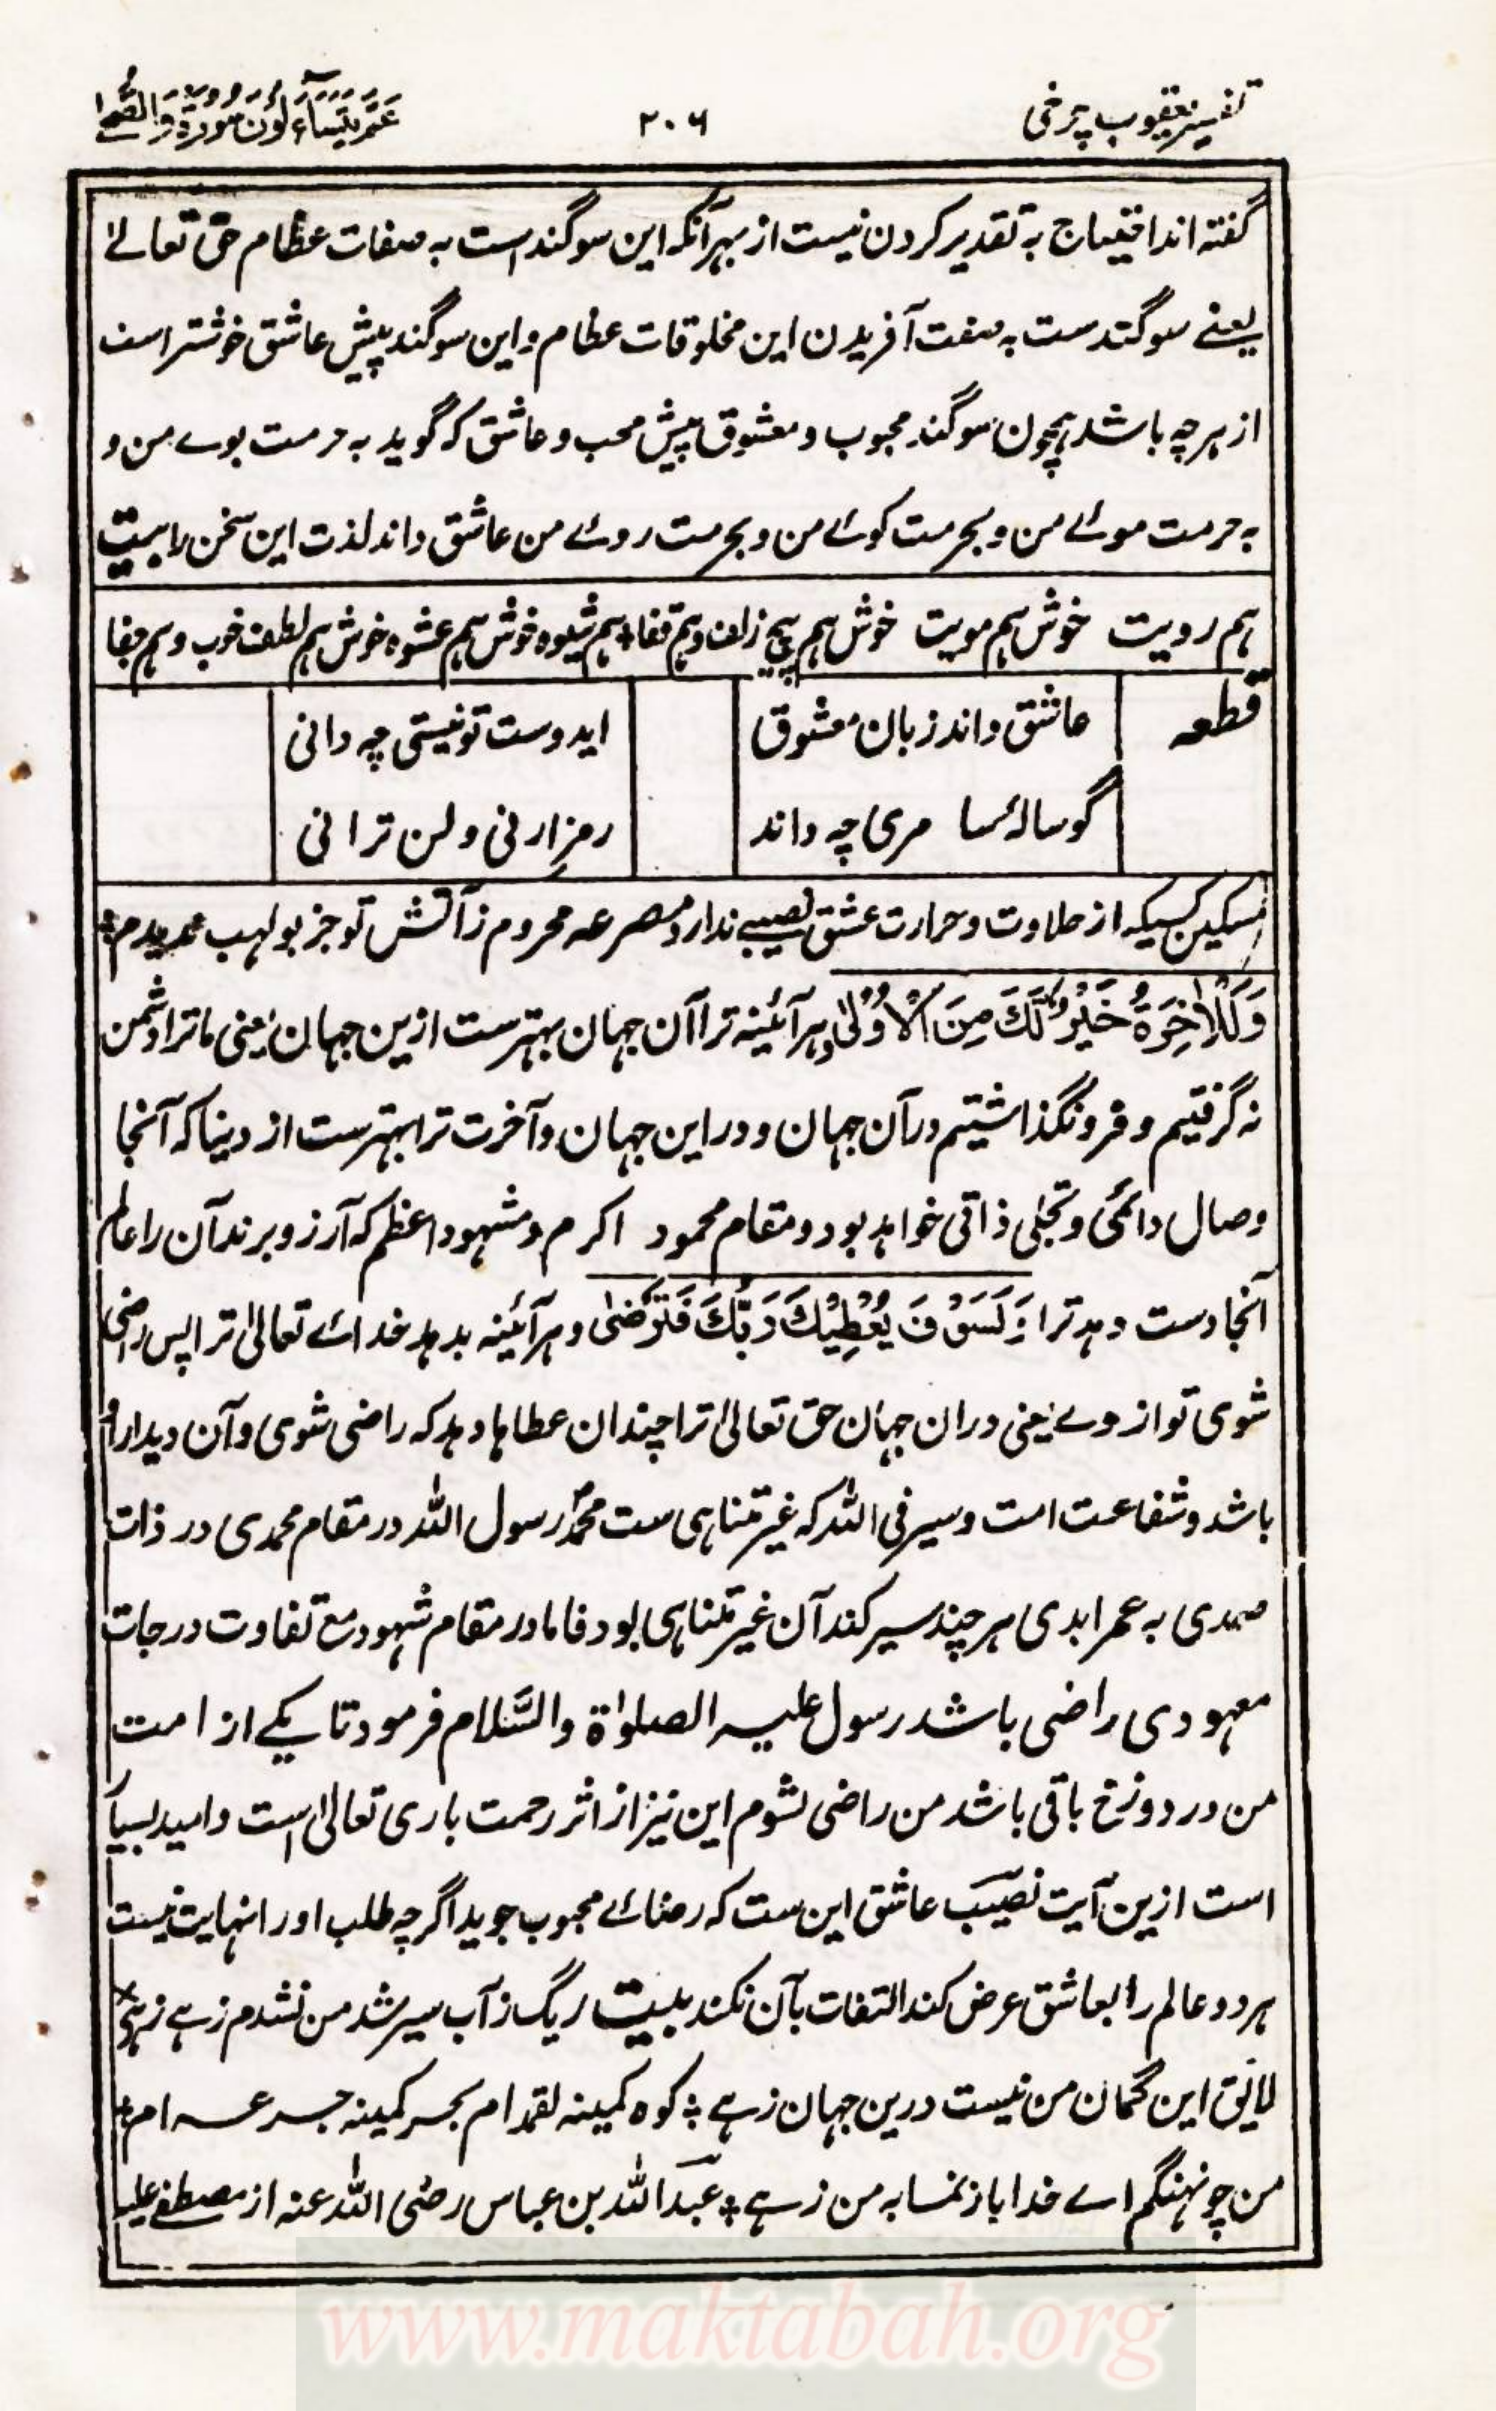 تفسیر یعقوب چرخی
۲۰۶
عَمَّ یَتَسَآءَلُوْنَ سُوْرَۃُ وَالضُّحٰی
گفته اند احتیاج به تقدیر کردن نیست از بهر آنکه این سوگند است به صفات عظام حق تعالےٰ
یعنے سوگند ست به صفت آفریدن این مخلوقات عظام و این سوگند پیش عاشق خوشتر است
از هرچه باشد همچون سوگند محبوب و معشوق پیش محب و عاشق که گوید به حرمت بوے من و
به حرمت موئے من و بحرمت کوئے من و بحرمت روئے من عاشق داند لذت این سخن را بیت
هم رویت خوش هم مویت خوش هم پیچ زلف و هم قفا * هم شیوه خوش هم عشوه خوش هم لطف خوب و هم جفا
قطعه عاشق داند زبان معشوق ایدوست تو نیستی چه دانی
گوسالۂ سامری چه داند رمز ارنی و لن ترانی
مسکین کسیکه از حلاوت و حرارت عشق نصیبے ندارد مصرعه محروم ز آتش تو جز بولهب ندیدم *
وَلَلْاٰخِرَةُ خَیْرٌ لَّكَ مِنَ الْاُوْلٰی و هر آئینه ترا آن جهان بهترست ازین جهان یعنی ما ترا دشمن
نه گرفتیم و فرو نگذاشتیم در آن جهان و در این جهان و آخرت ترا بهترست از دنیا که آنجا
وصال دائمی و تجلی ذاتی خواهد بود و مقام محمود اکرم و مشهود اعظم که آرزو برند آن را عالم
آنجا دست دهد ترا وَلَسَوْفَ یُعْطِیْكَ رَبُّكَ فَتَرْضٰی و هر آئینه بدهد خدائے تعالیٰ ترا پس راضی
شوی تو از وے یعنی دران جهان حق تعالیٰ ترا چندان عطاها دهد که راضی شوی و آن دیدار او
باشد و شفاعت امت و سیر فی الله که غیر متناهی ست محمد رسول الله در مقام محمدی در ذات
صمدی به عمر ابدی هر چند سیر کند آن غیر متناهی بود فاما در مقام شهود مع تفاوت درجات
معهودی راضی باشد رسول علیه الصلوٰة والسَّلام فرمود تا یکے از امت
من در دوزخ باقی باشد من راضی نشوم این نیز از اثر رحمت باری تعالیٰ است و امید بسیا
است ازین آیت نصیب عاشق این ست که رضائے محبوب جوید اگرچه طلب او را نهایت نیست
هر دو عالم را بعاشق عرض کند التفات بآن نکند بیت ریگ ز آب سیر شد من نشدم زهے زهے
لایق این گمان من نیست درین جهان زهے * کوه کمینه لقمه ام بحر کمینه جرعه ام *
من چو نهنگم اے خدا باز نما به من زهے * عبد الله بن عباس رضی الله عنه از مصطفےٰ علیه
www.maktabah.org